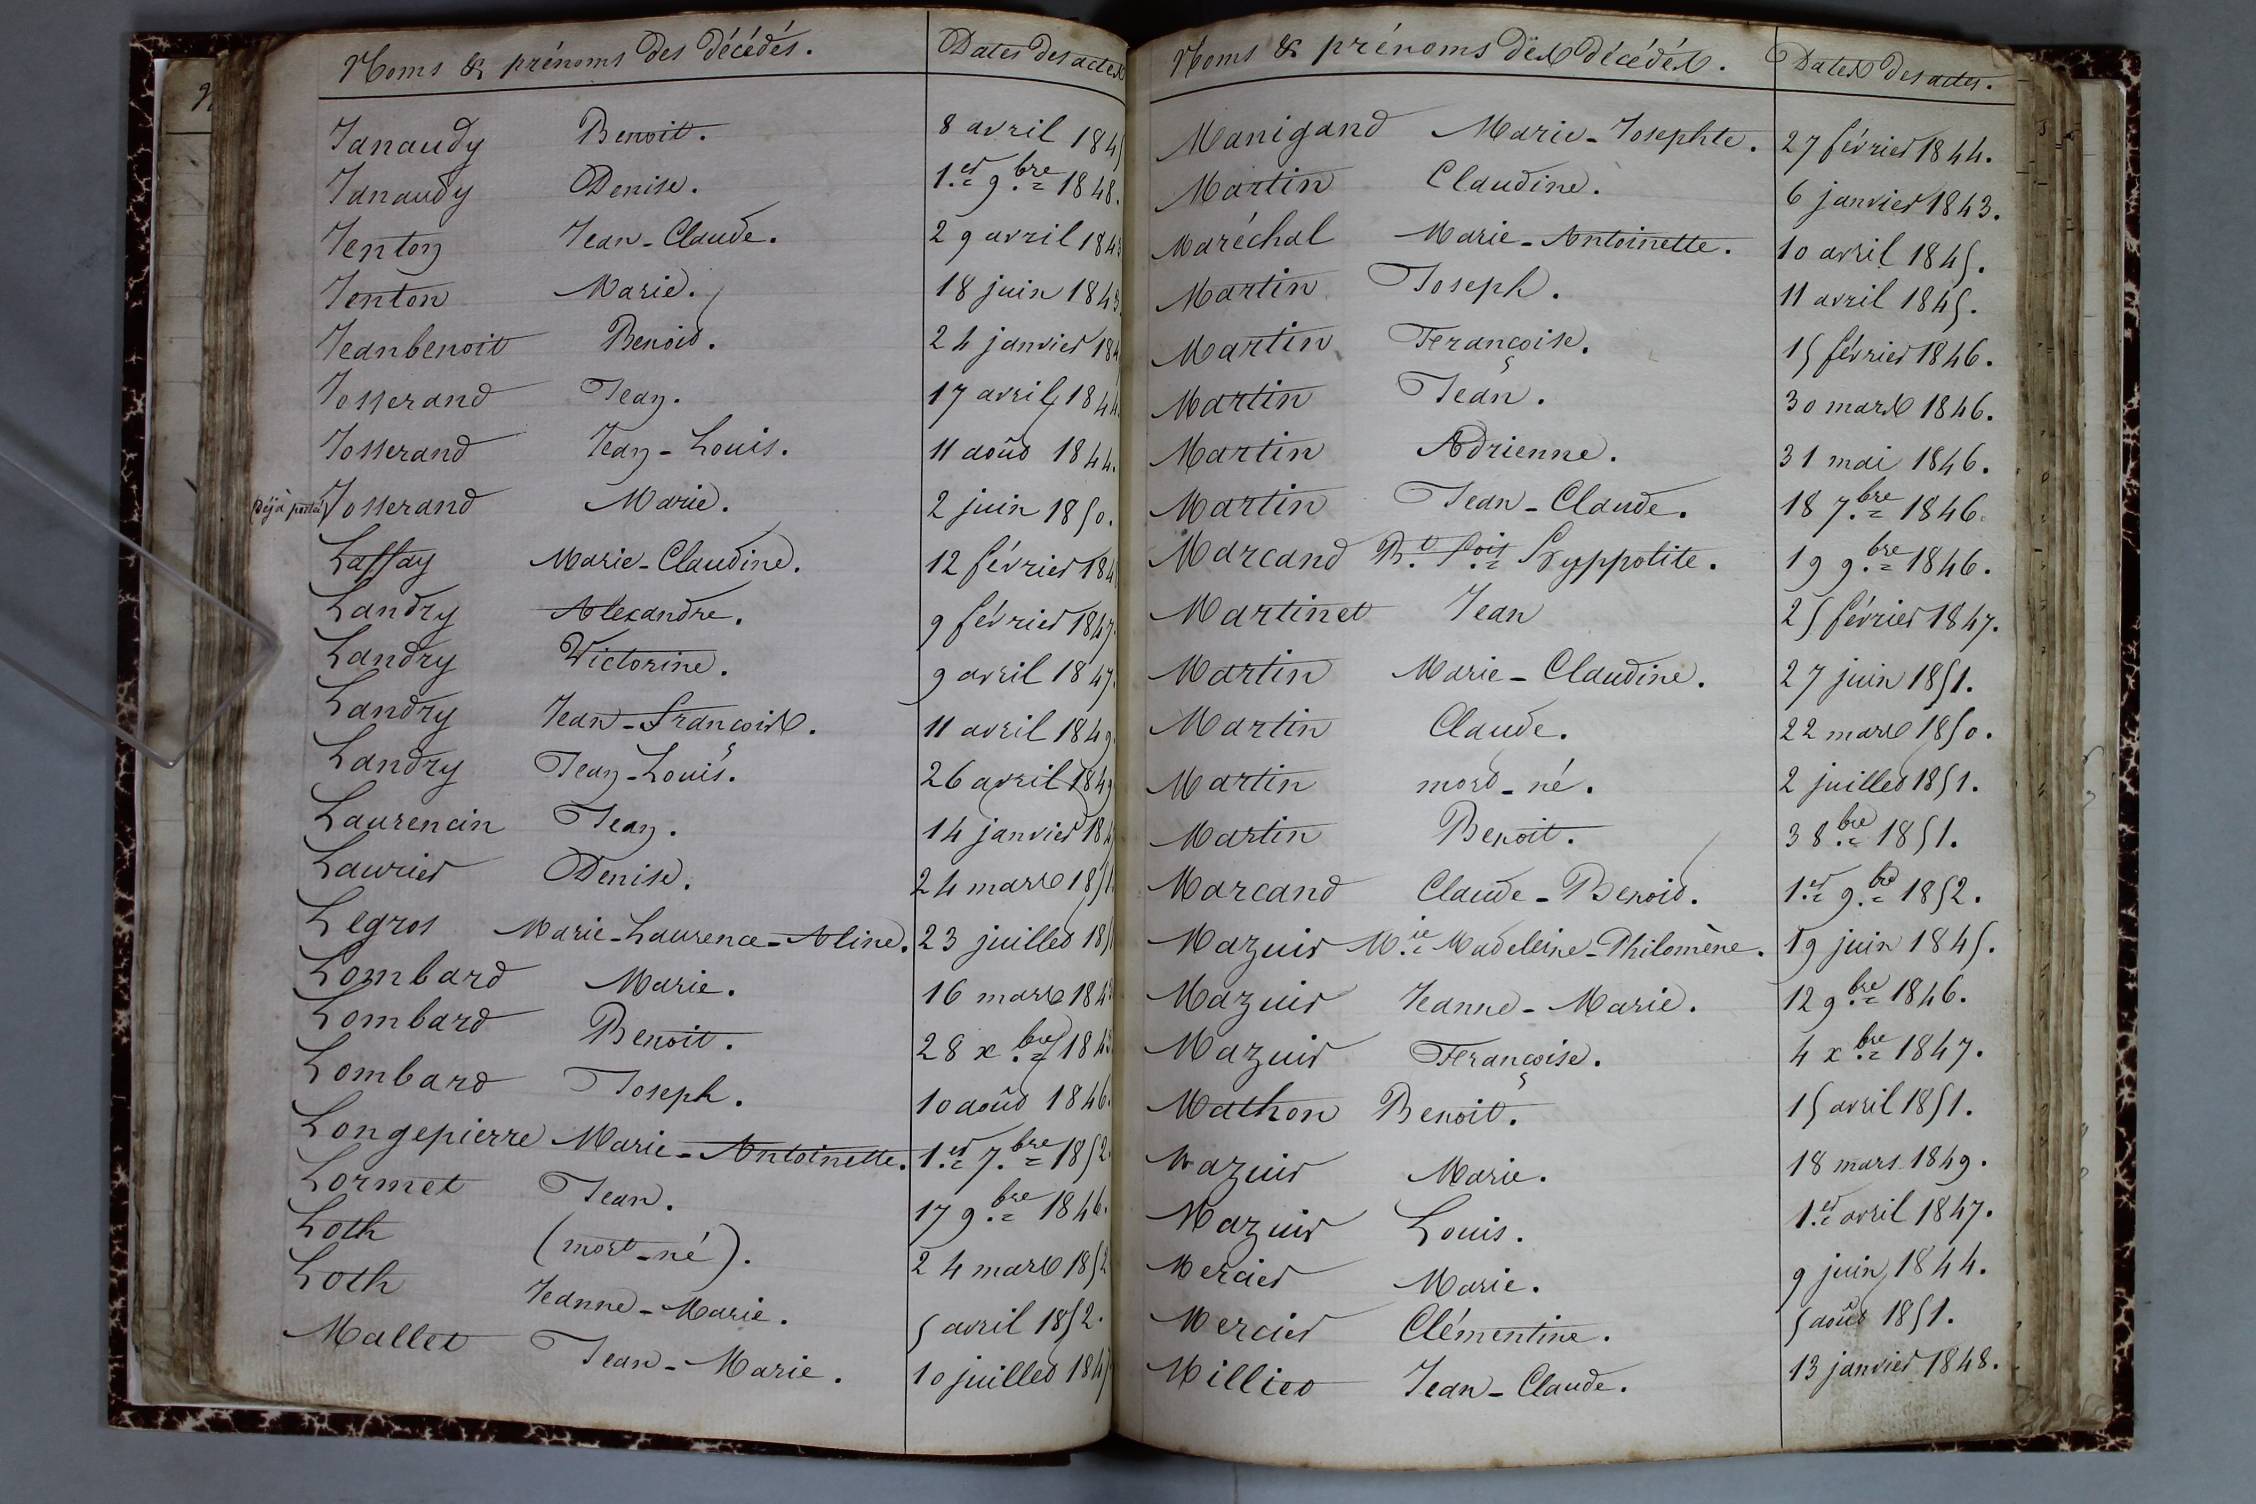 Noms & prénoms des décédés. Dates des actes
Janaudy Benoit. 8 avril 1845
Janaudy Denise. 1.er 9.bre 1848.
Jenton Jean-Claude. 29 avril 1843
Jenton Marie. 18 juin 1843
Jeanbenoit Benoit. 24 janvier 184
Josserand Jean. 17 avril 1844.
Josserand Jean-Louis. 11 août 1844.
(Déjà porté) Josserand Marie. 2 juin 1850.
Laffay Marie-Claudine. 12 février 184
Landry Alexandre. 9 février 1847.
Landry Victorine. 9 avril 1847.
Landry Jean-François. 11 avril 1849.
Landry Jean-Louis. 26 avril 1849
Laurencin Jean. 14 janvier 184
Laurier Denise. 24 mars 1851
Legros Marie-Laurence-Aline. 23 juillet 185
Lombard Marie. 16 mars 184
Lombard Benoit. 28 x.bre 184
Lombard Joseph. 10 août 1846.
Longepierre Marie-Antoinette. 1.er 7.bre 1852.
Lormet Jean. 17 9.bre 1846.
Loth (mort-né). 24 mars 1852
Loth Jeanne-Marie. 5 avril 1852.
Mallet Jean-Marie. 10 juillet 184
Noms & prénoms des décédés. Dates des actes.
Manigand Marie-Josephte. 27 février 1844.
Martin Claudine. 6 janvier 1843.
Maréchal Marie-Antoinette. 10 avril 1845.
Martin Joseph. 11 avril 1845.
Martin Françoise. 15 février 1846.
Martin Jean. 30 mars 1846.
Martin Adrienne. 31 mai 1846.
Martin Jean-Claude. 18 7.bre 1846.
Marcand B.t f.ois Hyppolite. 19 9.bre 1846.
Martinet Jean 25 février 1847.
Martin Marie-Claudine. 27 juin 1851.
Martin Claude. 22 mars 1850.
Martin mort-né. 2 juillet 1851.
Martin Benoit. 3 8.bre 1851.
Marcand Claude-Benoit. 1.er 9.bre 1852.
Mazuir M.ie Madeleine-Philomène. 19 juin 1845.
Mazuir Jeanne-Marie. 12 9.bre 1846.
Mazuir Françoise. 4 x.bre 1847.
Mathon Benoit. 15 avril 1851.
Mazuir Marie. 18 mars 1849.
Mazuir Louis. 1.er avril 1847.
Mercier Marie. 9 juin 1844.
Mercier Clémentine. 5 août 1851.
Milliet Jean-Claude. 13 janvier 1848.